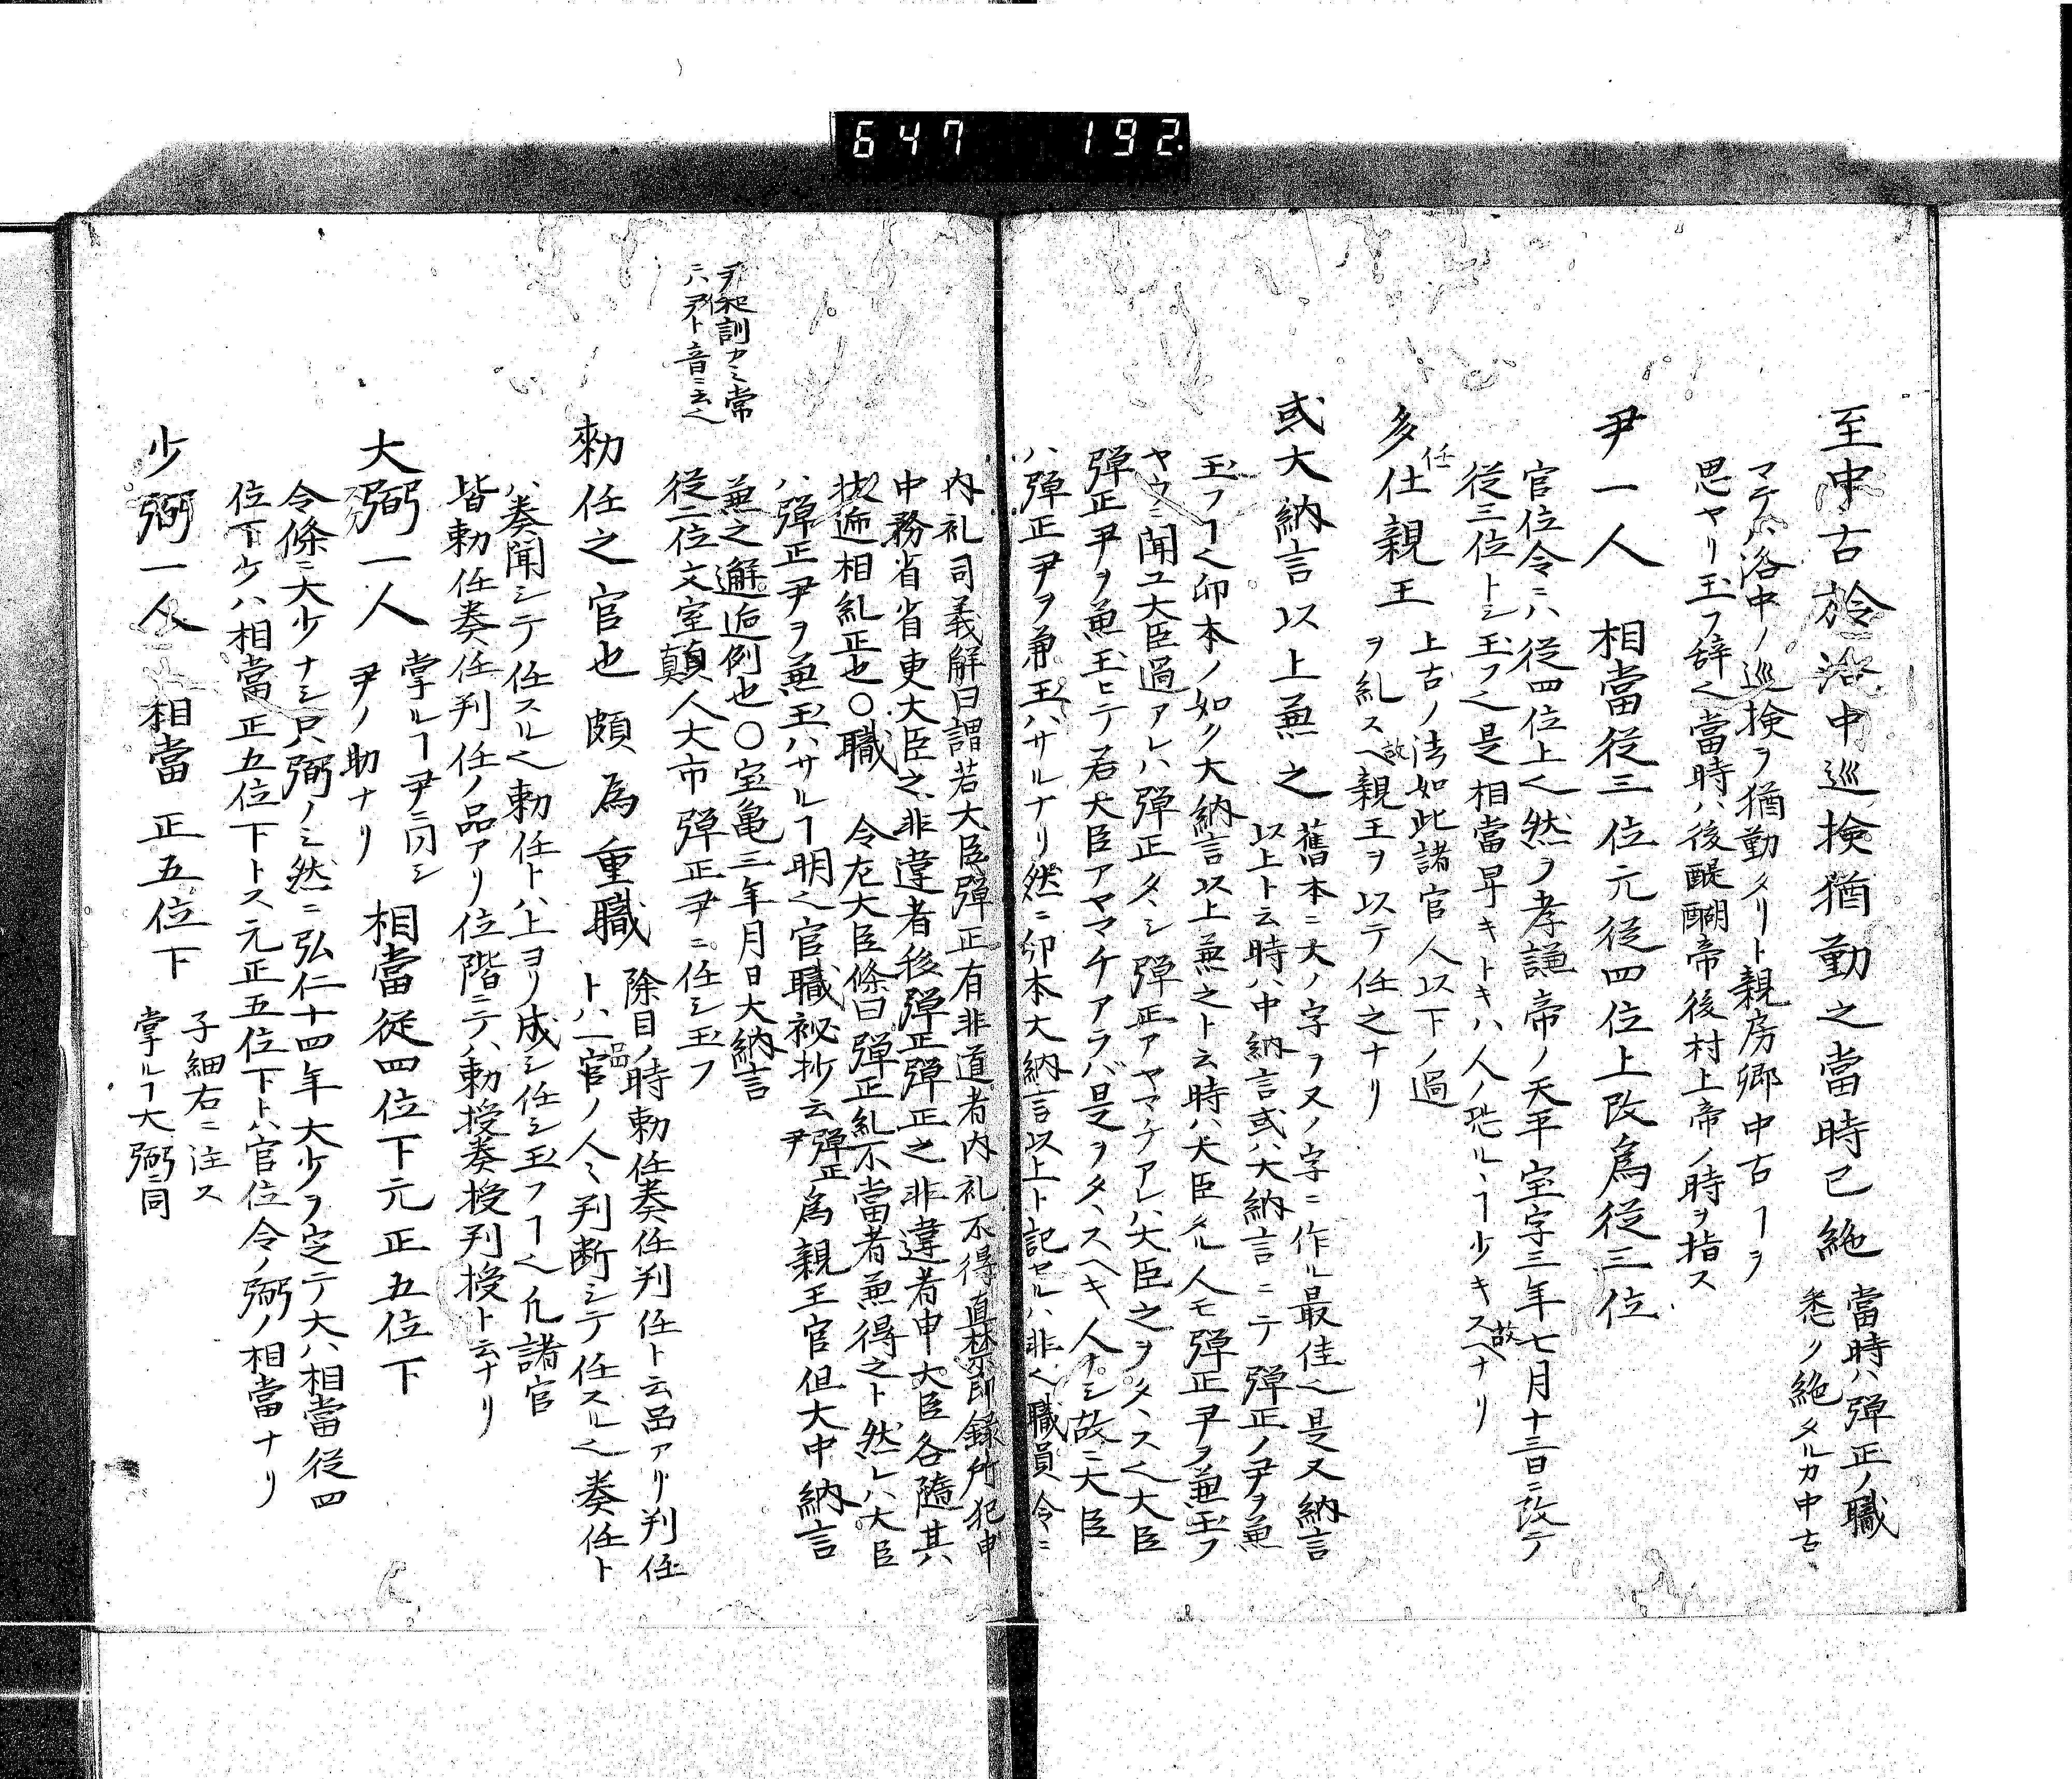 647 192.
至中古於洛中巡検猶勤之當時已絶
當時ハ弾正ノ職
悉ク絶タルカ中古
マテハ洛中ノ巡検ヲ猶勤タリト親房卿中古ヿヲ
思ヤリ玉フ辞く當時ハ後醍醐帝後村上帝ノ時ヲ指ス
尹一人 相當従三位元従四位上改為従三位
官位令ニハ従四位上く然ヲ孝謙帝ノ天平宝字三年七月十三日ニ改テ
従三位トシ玉フく是相當昇キトキハ人ノ恐ルヽヿ少キ故スヘナリ
多仕任親王
上古ノ法如此諸官人以下ノ過
ヲ糺ス故へ親王ヲ以テ任之ナリ
或大納言以上兼之
舊本ニ大ノ字ヲ又ノ字ニ作ル最佳く是又納言
以上ト云時ハ中納言或ハ大納言ニテ弾正ノ尹ヲ兼
玉フヿく印本ノ如ク大納言以上兼之ト云時ハ大臣タル人モ弾正尹ヲ兼玉フ
ヤウニ聞ユ大臣過アレハ弾正タヽシ弾正アヤマチアレハ大臣之ヲタヽスく大臣
弾正尹ヲ兼玉ヒテ若大臣アヤマチアラバ是ヲタヽスヘキ人ナシ故ニ大臣
ハ弾正尹ヲ兼玉ハサルナリ然ニ印本大納言以上ト記セルハ非く職員令ニ
内礼司義解曰謂若大臣弾正有非道者内礼不得直禁即録所犯申
中務省省更大臣之非違者移弾正弾正之非違者申大臣各隨其
状逓相糺正也〇職 令左大臣條曰弾正糺不當者兼得之ト然レハ大臣
ハ弾正尹ヲ兼玉ハサルヿ明く官職祕抄云弾正尹為親王官但大中納言
兼之邂逅例也〇宝亀三年月日大納言
従二位文室真人大市弾正尹ニ任シ玉フ
ヲ和訓カミ常
ニハ尹ト音ニ云く
勅任之官也頗為重職
除目ノ時勅任奏任判任ト云品アリ判任
トハ一官ノ人々判断シテ任スルく奏任ト
ハ奏聞シテ任スルく勅任トハ上ヨリ成シ任シ玉フヿく凢諸官
皆勅任奏任判任ノ品アリ位階ニテハ勅授奏授判授ト云ナリ
大弼一人
掌ルヿ尹ニ同シ
尹ノ助ナリ
相當従四位下元正五位下
令條ニ大少ナシ只弼ノミ然ニ弘仁十四年大少ヲ定テ大ハ相當従四
位下少ハ相當正五位下トス元正五位下トハ官位令ノ弼ノ相當ナリ
少弼一人 相當正五位下
子細右ニ注ス
掌ルヿ大弼ニ同